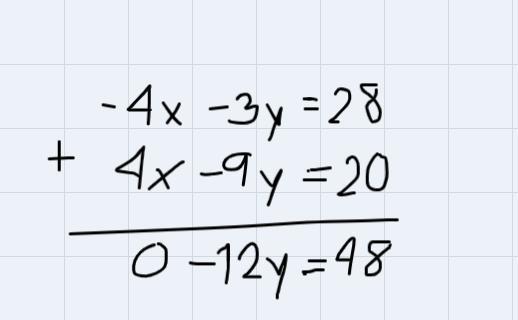 -4x -3y = 28
+ 4x -9y = 20
0 -12y = 48